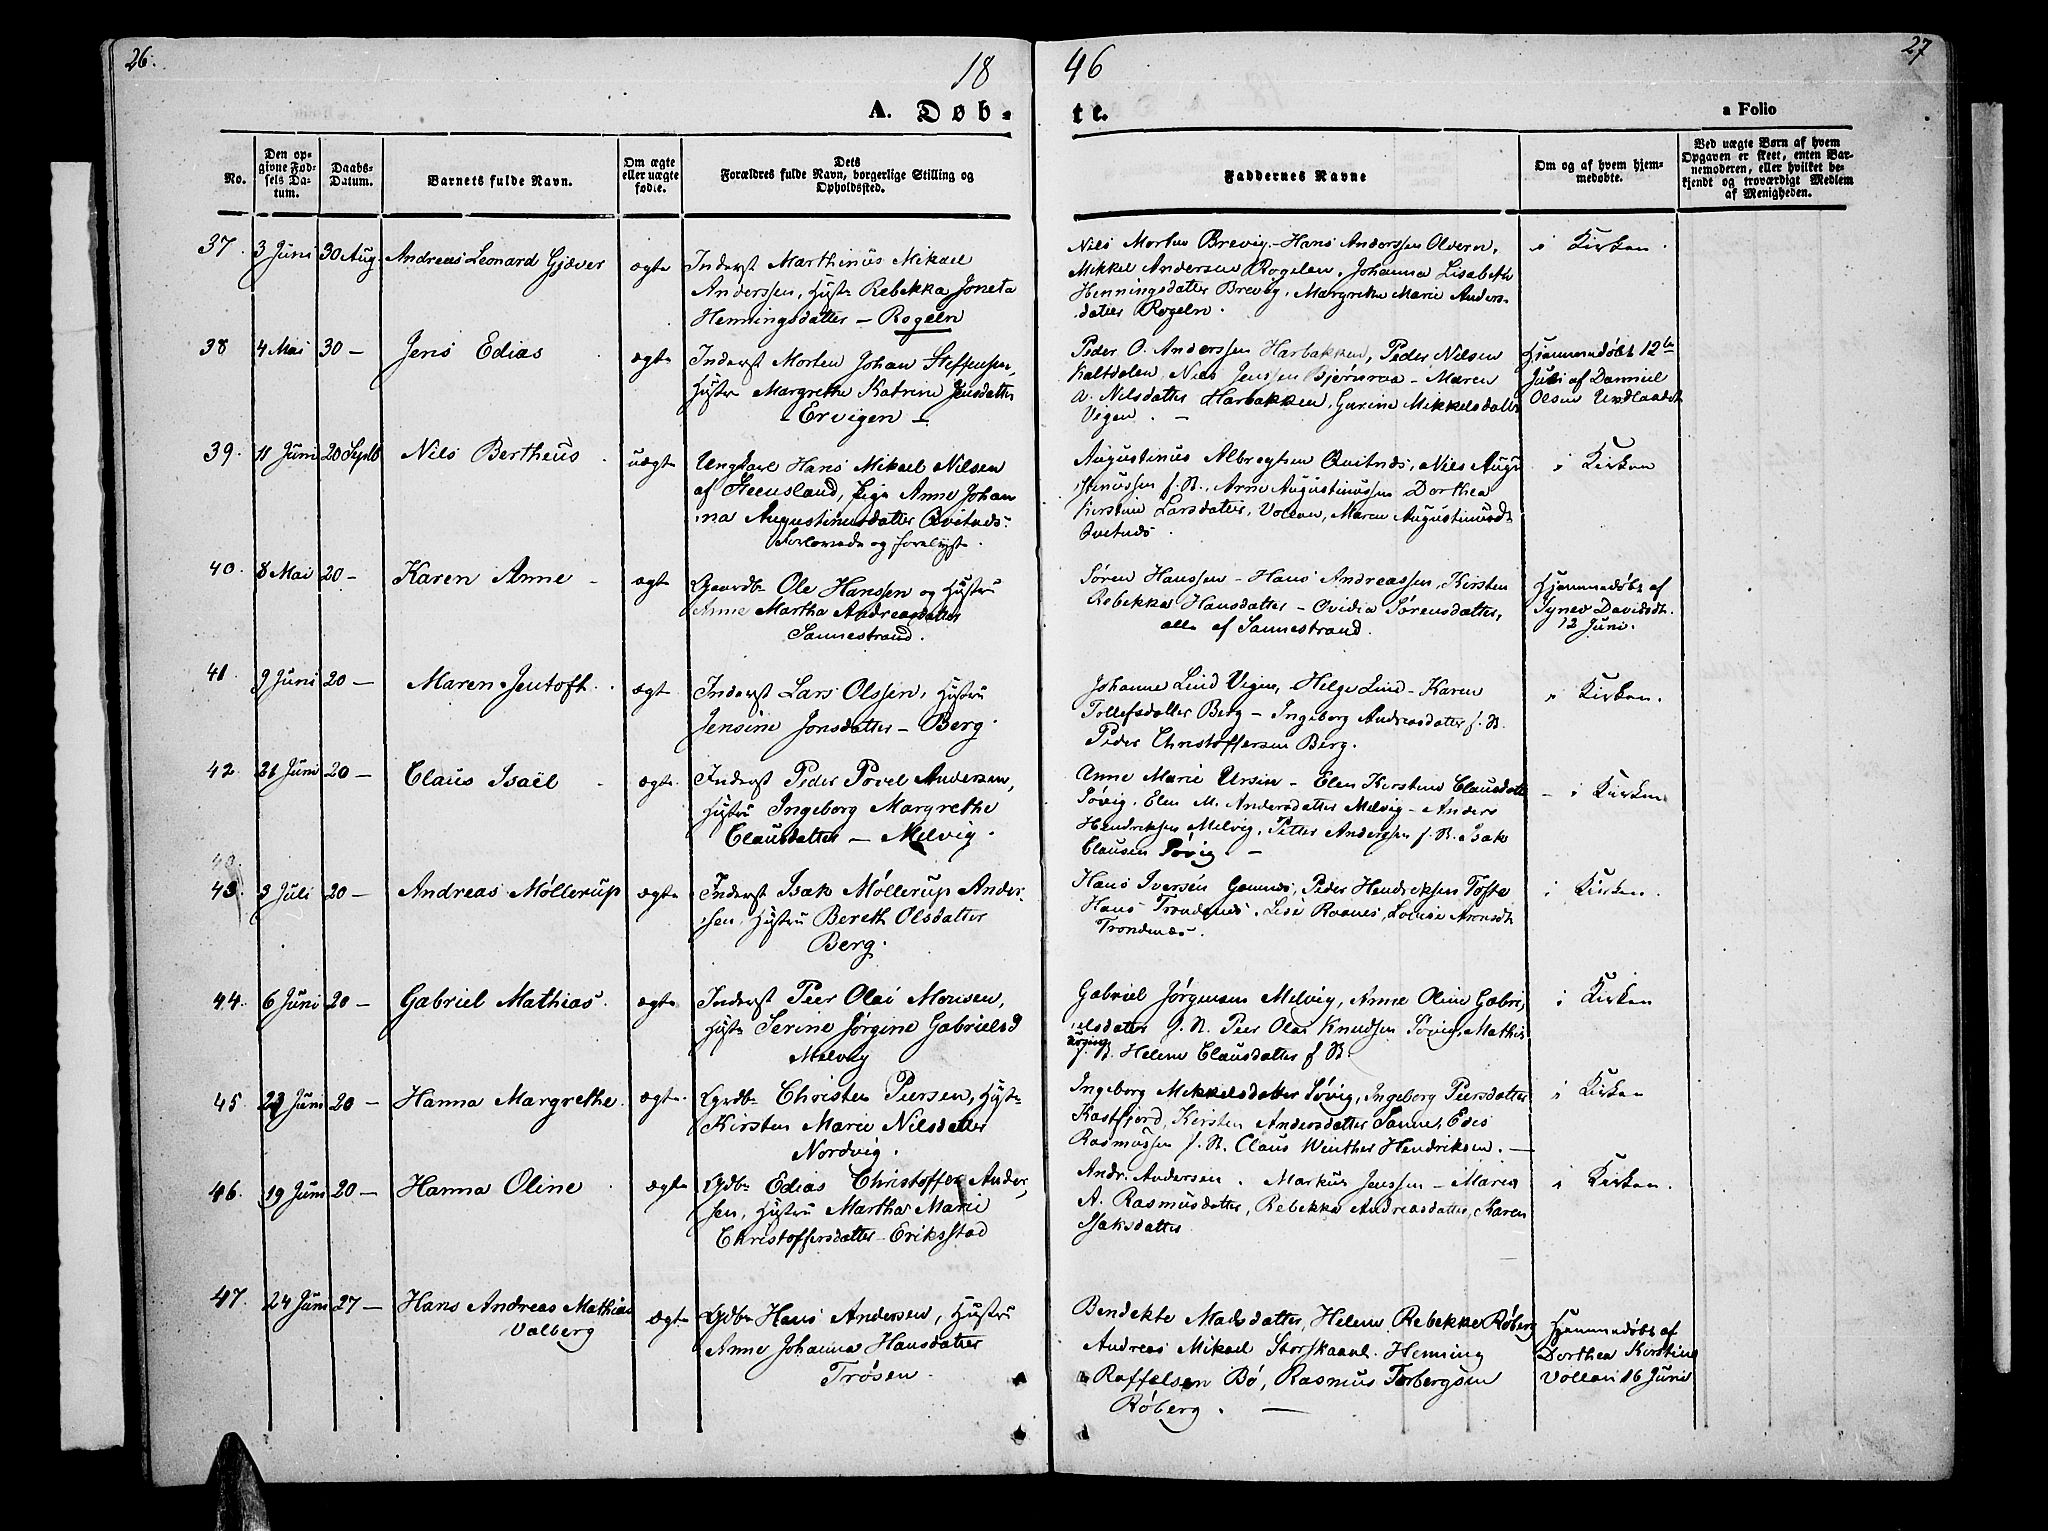 26.
18
46
27
A. Døb-
te.
a Folio
No.
Den op-
givne Fød-
sels Da-
tum.
Daabs-
Datum.
Barnets fulde Navn.
Om ægte
eller uægte
fødte.
Dets
Forældres fulde Navn, borgerlige Stilling og
Opholdssted.
Faddernes Navne
Om og af hvem hjem-
medøbte.
Ved uægte Børn af hvem
Opgaven er skeet, enten Bar-
nemoderen, eller hvilket be-
kjendt og troværdigt Medlem
af Menigheden.
37. 3 Juni 30 Aug. Andreas Leonard Gjæver ægte
Inderst Marthinus Mikael
Anderssen, Hustr Rebekka Joneta
Henningsdatter – Rogeln
Nils Morten Brevig – Hans Anderssen Olvern,
Mikkel Andersen Rogelen, Johanna Lisabeth
Henningsdatter Brevig, Margrethe Marie Anders-
datter Rogeln.
i Kirken.
38 4 Mai 30 – Jens Edias ægte
Inderst Morten Johan Steffensen,
Hustr Margrethe Katrine Jensdatter
– Ervigen –
Peder O. Anderssen Harbakken, Peder Nilsen
Kaltdalen, Niels Jenssen Bjørnraa – Maren
A. Nilsdatter Harbakken, Gurine Mikkelsdatter
Vigen. –
Hjemmedøbt 12te
Juli af Damiel
Olsen
39. 11 Juni 20 Septb Nils Bertheus uægte
Ungkarl Hans Mikael Nilsen
af Steensland, Pige Anne Johan
na Augustinusdatter Qvitnes.
Forlovede og forelyste.
Augustinus Albregtsen Qvitnes, Niels Augu
stinussen f. St., Arne Augustinussen Dorthea
Kirstine Larsdatter, Vollen, Maren Augustinusdt
Qvitnes.
i Kirken
40. 8 Mai 20 – Karen Anne – ægte
Gaardb Ole Hanssen og Hustru
Anne Martha Andreasdatter
Sannestrand.
Søren Hanssen – Hans Andreassen, Kirsten
Rebekka Hansdatter – Ovidia Sørensdatter,
alle af Sannestrand.
Hjemmedøbt af
Synev Davidsdt.
12 Juni.
41 9 Juni 20 – Maren Jentoft. ægt
Inderst Lars Olssen, Hustru
Jensine Jonsdatter – Berg.
Johanne Lind Vigen, Helge Lind – Karen
Tollefsdatter Berg – Ingeborg Andreasdatter f. St.
Peder Christoffersen Berg.
i Kirken.
42. 21 Juni 20 – Claus Isaël ægte
Inderst Peder Povel Andersen,
Hustru Ingeborg Margrethe
Clausdatter – Melvig.
Anne Marie Ursin – Elen Kirstine Clausdatt
Søvig, Elen M. Andersdatter Melvig – Anders
Hendriksen Melvig, Petter Andersen f. St. Isak
Clausen Søvig. –
– i Kirken
43. 3 Juli 20 – Andreas Møllerup ægte
Inderst Isak Møllerup Ander-
sen, Hustru Bereth Olsdatter
Berg.
Hans Iversen Gamnes, Peder Hendriksen Tofte
Hans Trondenes, Lise Raanes, Lovise Arnsdt
Trondenæs.
i Kirken.
44. 6 Juni 20 – Gabriel Mathias. ægte
Inderst Peer Olai Monsen,
Hustr Serine Jørgine Gabrielsd
Melvig
Gabriel Jørgensen Melvig, Anne Oline Gabri,
elsdatter f. St. Peer Olai Knudsen Søvig, Mathis
f. St. Helene Clausdatter f St.
i Kirken
45 23 Juni 20 – Hanna Margrethe. ægte.
Gaardb Christen Peersen, Hustr
Kirsten Marie Nilsdatter
Nordvig.
Ingeborg Mikkelsdatter Søvig, Ingeborg Peersdatter
Kastfjord, Kirsten Andersdatter Sannes, Edis
Rasmussen f. St. Claus Winther Hendriksen. –
i Kirken
46. 19 Juni 20 – Hanna Oline ægte
Gdb Edias Christoffer Ander,
sen, Hustru Martha Marie
Christoffersdatter – Eriksstad
Andr. Andersen. Markus Jenssen – Maria
A. Rasmusdatter, Rebekka Andreasdatter, Karen
Isaksdatter
i Kirken.
47. 24 Juni 27 – Hans Andreas Mathias
Valberg ægte
Gdb Hans Andersen, Hustru
Anne Johanna Hansdatter
Trøsen.
Bendekte Madsdatter, Helene Rebekke Røberg
Andreas Mikael Storskaanl. Henning
Roffelsen Bø, Rasmus Torbergsen
Røberg. –
Hjemmedøbt af
Dorthea Kirstine
Vollen 16 Juni